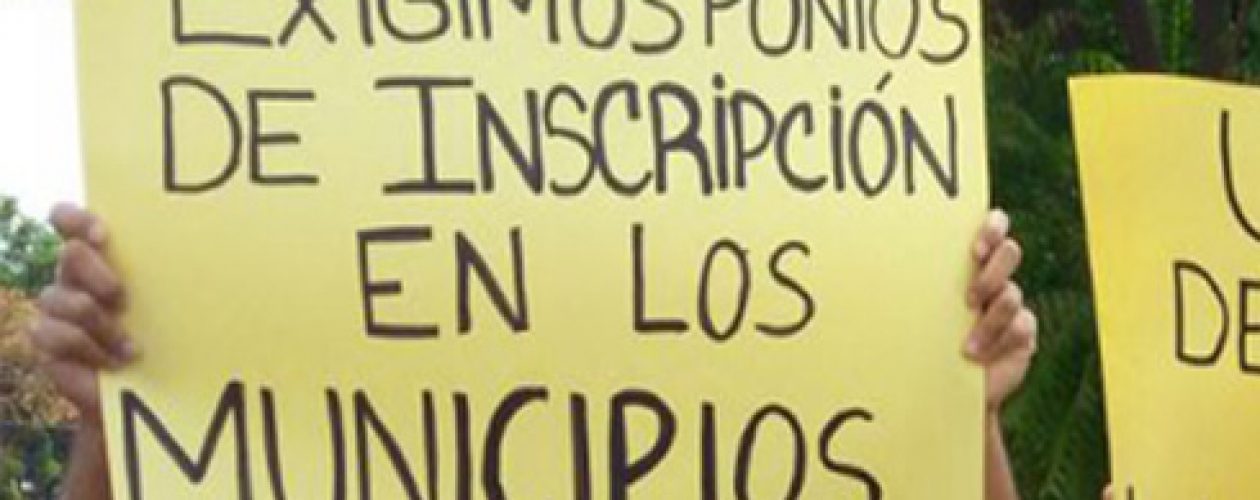 EXIGIMOS PUNTOS
DE INSCRIPCIÓN
EN LOS
MUNICIPIOS
DE